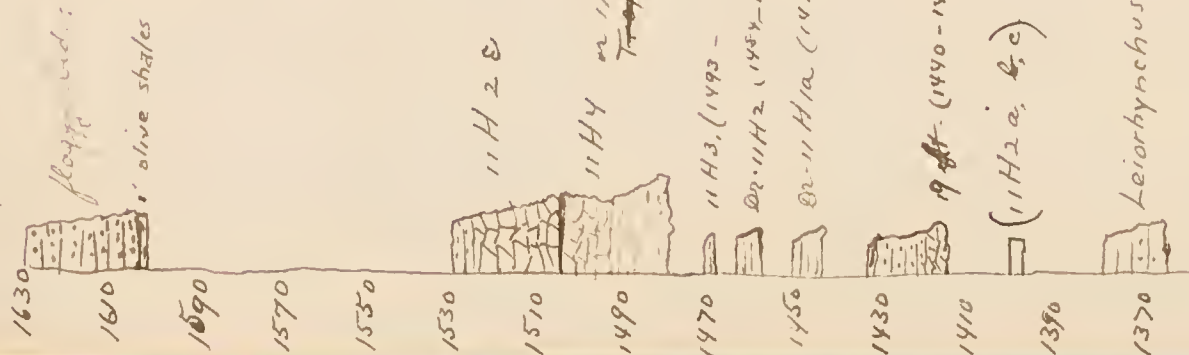 flags
1' olive shales
11H2
11H4
11H3, (1493-
Or. 11H2 (1484-
Or. 11H1a (14
19 ft. (1440-14
(11H2a, b, c)
Leiorhynchus
1630
1610
1590
1570
1550
1530
1510
1490
1470
1450
1430
1410
1390
1370